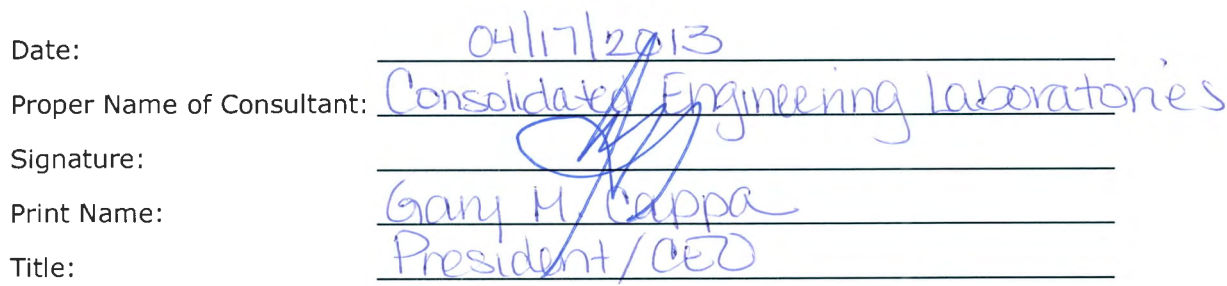 Date: 04/17/2013
Proper Name of Consultant: Consolidated Engineering Laboratories
Signature:
Print Name: Gary M. Cappa
Title: President/CEO